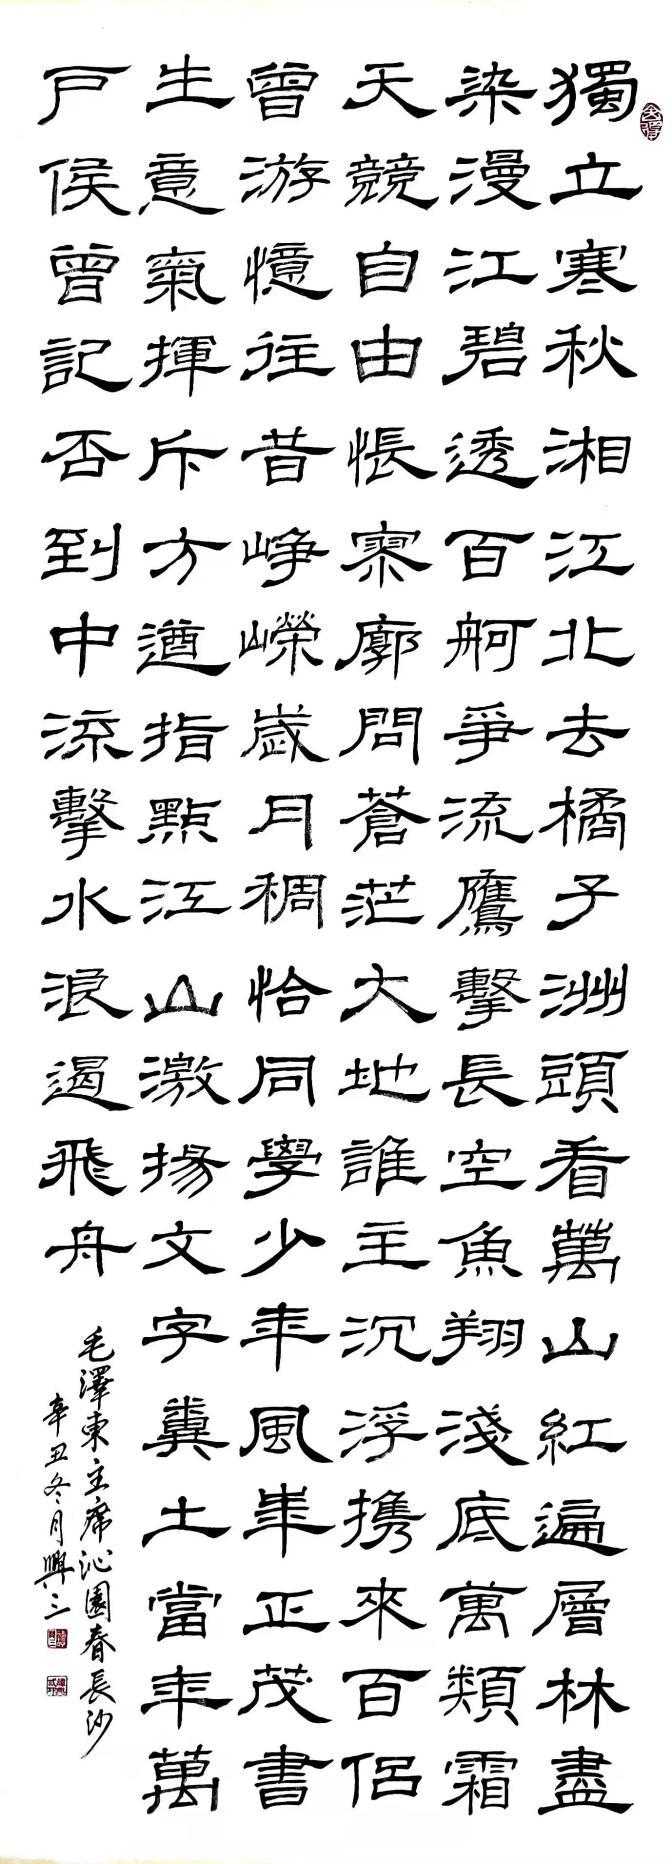 獨立寒秋湘江北去橘子洲頭看萬山紅遍層林盡
染漫江碧透百舸爭流鷹擊長空魚翔淺底萬類霜
天競自由悵寥廓問蒼茫大地誰主沉浮携來百侶
曾游憶往昔崢嶸歲月稠恰同學少年風華正茂書
生意氣揮斥方遒指點江山激揚文字糞土當年萬
戶侯曾記否到中流擊水浪遏飛舟
毛澤東主席沁園春長沙
辛丑冬月興三